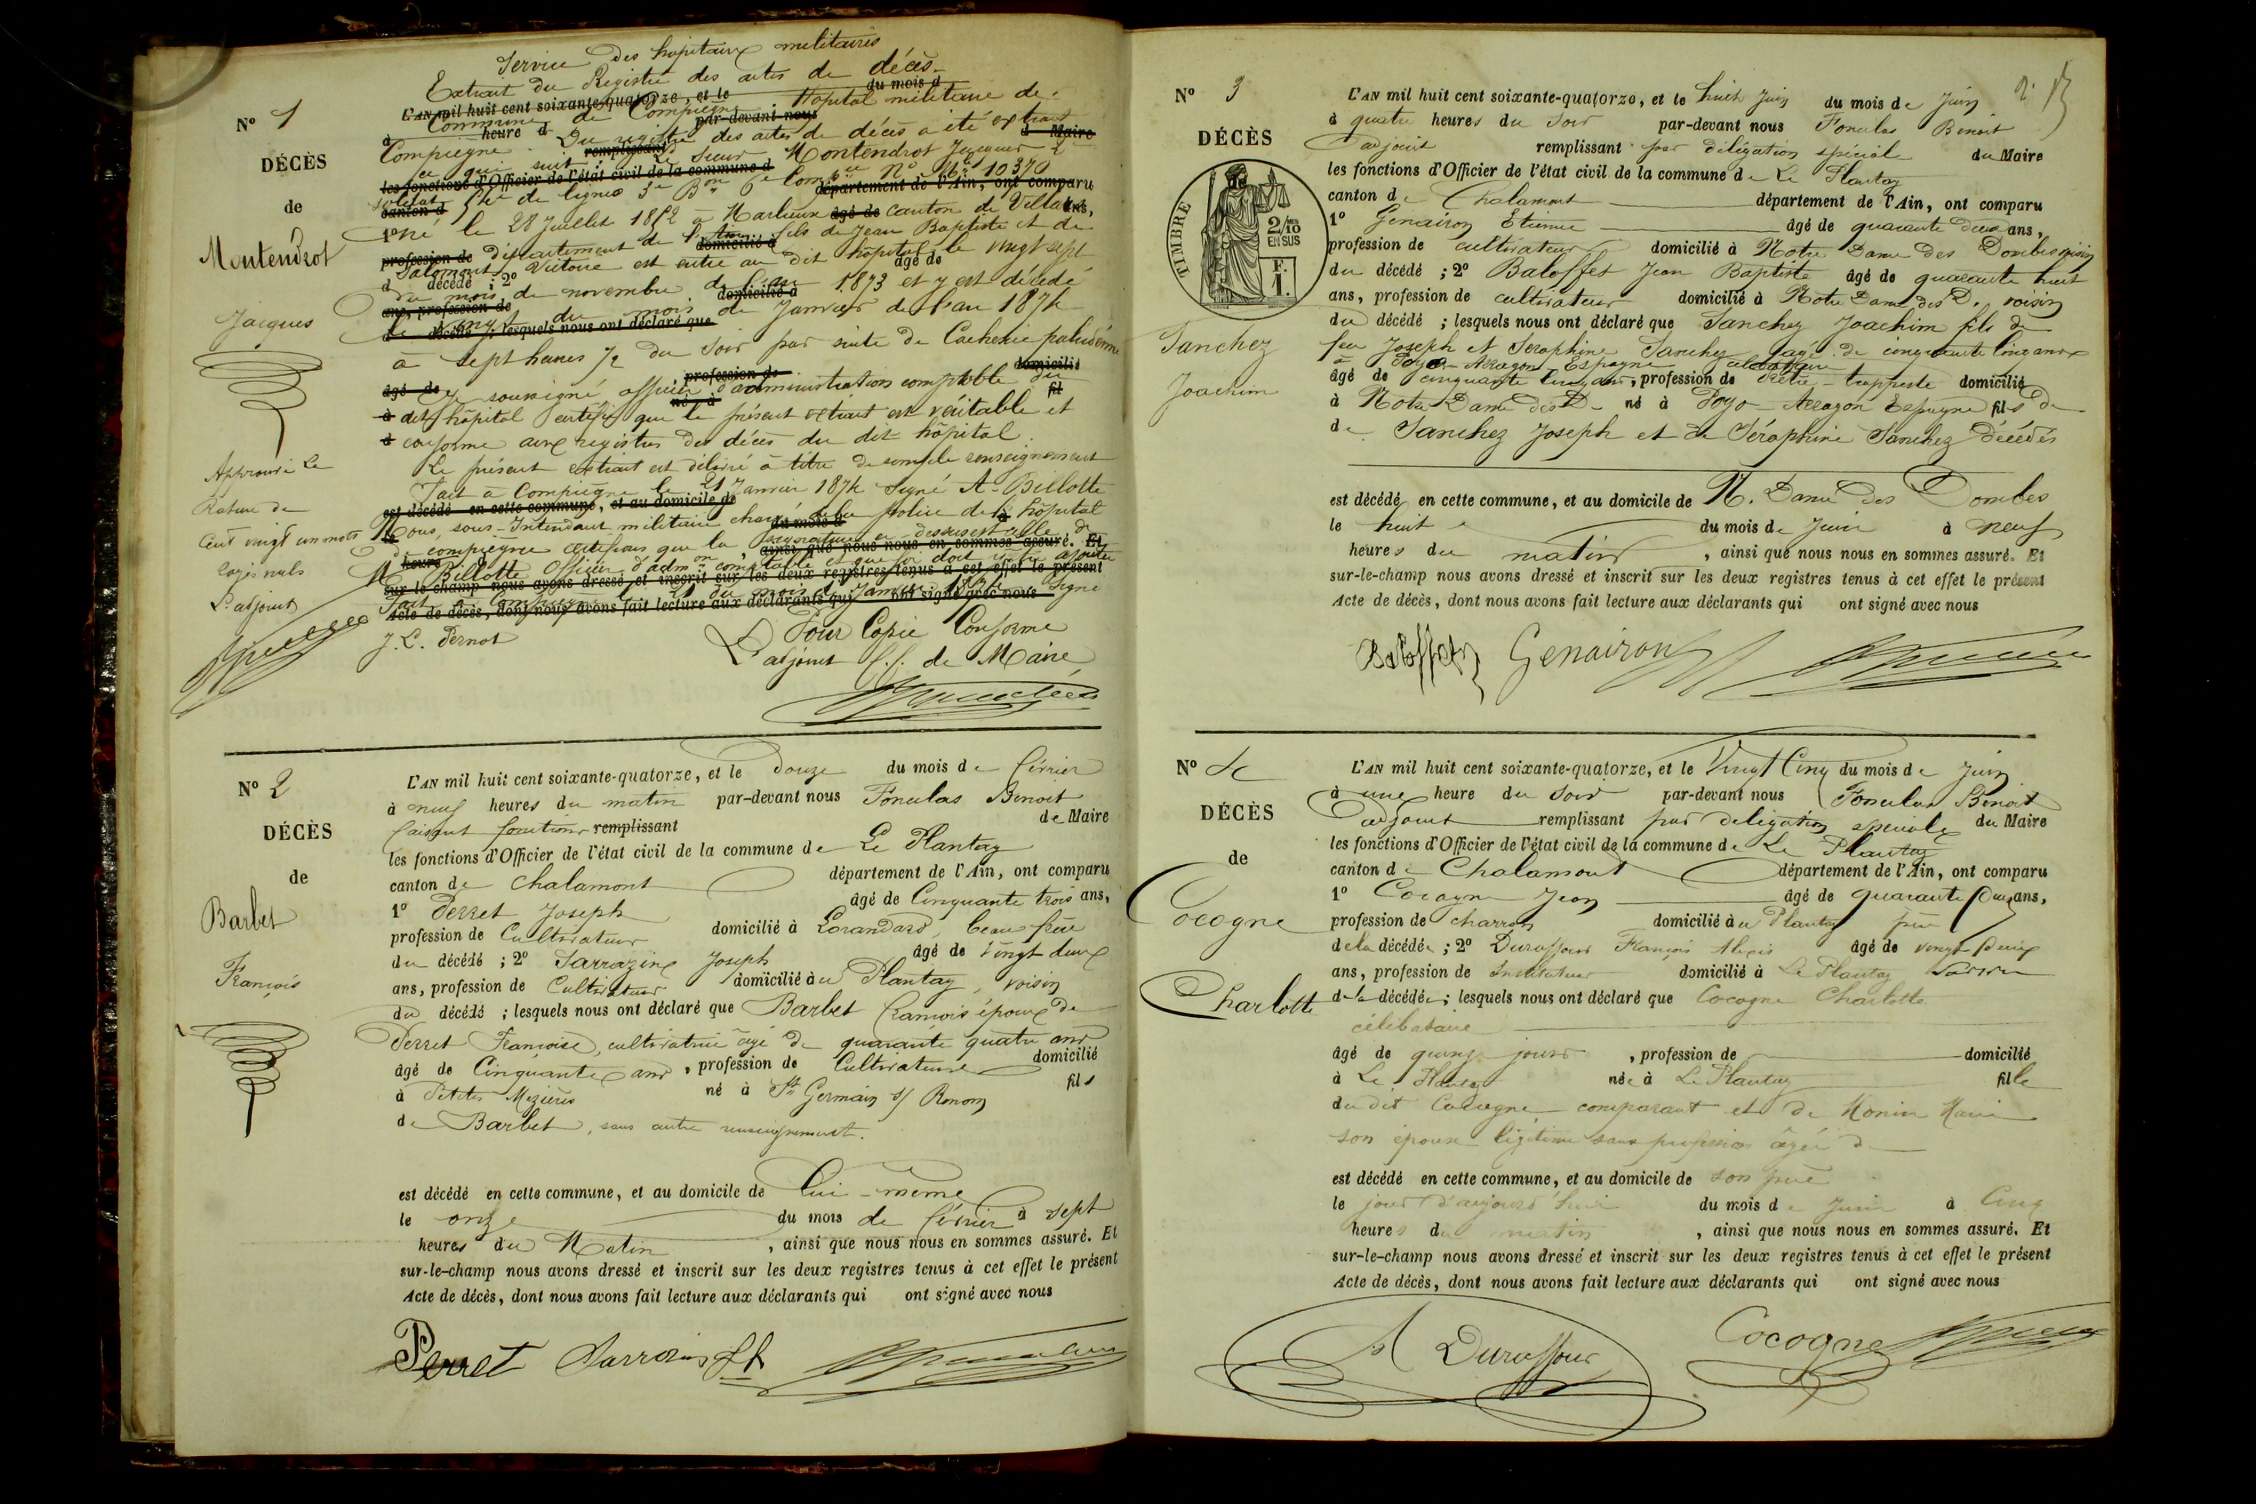 Service des hôpitaux militaires
Extrait du Registre des actes de décès
L'AN mil huit cent soixante-quatorze, et le du mois d
Commune de Compiègne. Hôpital militaire de
par-devant nous
N° 1
heure d
Compiègne. Du registre des actes de décès a été extrait
Maire
DÉCÈS
remplissant
ce qui suit: Le Sieur Montendrot Jacques
les fonctions d'Officier de l'état civil de la commune d
soldat de ligne 3e Bon 6e Compie No Mle 10370
canton d département de l'Ain, ont comparu
de
1° né le 28 Juillet 1852 à Marlieux âgé de canton de Villars ans,
Montendrot
profession de Département de l'Ain domicilié à fils de Jean Baptiste et de
Victoire est entré au dit hôpital le vingt sept
d décédé ; 2° âgé de
du mois de novembre de l'an 1873 et y est décédé
ans, profession de domicilié à
Jacques
le vingt du mois de Janvier de l'an 1874
d décédé ; lesquels nous ont déclaré que
à sept heures ½ du soir par suite de Cachexie paludéenne
âgé de profession de domicilié
soussigné officier d'administration comptable du
à né à fil
dit hôpital certifie que le présent extrait est véritable et
conforme aux registres des décès du dit hôpital.
Approuvé la
Le présent extrait est délivré à titre de simple renseignement
Rature de
Fait à Compiègne le 21 Janvier 1874 Signé A. Billotte
est décédé en cette commune, et au domicile de
cent vingt un mots
Nous, sous-Intendant militaire chargé de la police de l'hôpital
du mois d
rayés nuls
de compiègne certifions que la signature ci dessus est celle de
heure , ainsi que nous nous en sommes assuré. Et
L'adjoint
M Billotte officier d'admon comptable et que foi doit être ajoutée
sur-le-champ nous avons dressé et inscrit sur les deux registres tenus à cet effet le présent
Fait à Compiègne le 21 du mois de Janvier Signé
Acte de décès, dont nous avons fait lecture aux déclarants qui ont signé avec nous
J. L. Pernot
Pour Copie Conforme
L'adjoint f.f. de Maire
N° 2
L'AN mil huit cent soixante-quatorze, et le douze du mois de février
à neuf heures du matin par-devant nous Fonculas Benoit
DÉCÈS
faisant fonctions remplissant de Maire
les fonctions d'Officier de l'état civil de la commune de Le Plantay
de
canton de Chalamont département de l'Ain, ont comparu
Barbet
1° Perret Joseph âgé de Cinquante trois ans,
profession de Cultivateur domicilié à Lorandard, beau frère
François
du décédé ; 2° Sarrazin Joseph âgé de vingt deux
ans, profession de Cultivateur domicilié au Plantay, voisin
du décédé ; lesquels nous ont déclaré que Barbet François époux de
Perret Françoise, cultivatrice âgée de quarante quatre ans
âgé de Cinquante ans, profession de Cultivateur domicilié
à Petites Mezières né à St Germain s/ Renon fils
de Barbet, sans autre renseignement.
est décédé en cette commune, et au domicile de Lui-même
le onze du mois de février à sept
heures du Matin , ainsi que nous nous en sommes assuré. Et
sur-le-champ nous avons dressé et inscrit sur les deux registres tenus à cet effet le présent
Acte de décès, dont nous avons fait lecture aux déclarants qui ont signé avec nous
Perret Sarrazin
2.
N° 3
L'AN mil huit cent soixante-quatorze, et le huit Juin du mois de Juin
à quatre heures du soir par-devant nous Fonculas Benoit
DÉCÈS
adjoint remplissant par délégation spéciale du Maire
les fonctions d'Officier de l'état civil de la commune de Le Plantay
canton de Chalamont département de l'Ain, ont comparu
TIMBRE
2/10 EN SUS
F. 1.
1° Genairon Etienne âgé de quarante deux ans,
profession de cultivateur domicilié à Notre Dame des Dombes voisin
du décédé ; 2° Baloffet Jean Baptiste âgé de quarante huit
ans, profession de cultivateur domicilié à Notre Dame des D. voisin
Sanchez
du décédé ; lesquels nous ont déclaré que Sanchez Joachim fils de
feu Joseph et Séraphine Sanchez âgé de cinquante cinq ans
à Poyo Arragon Espagne célibataire
Joachim
âgé de cinquante cinq ans, profession de Prêtre-trappiste domicilié
à Notre Dame des D. né à Poyo Arragon Espagne fils de
de Sanchez Joseph et de Séraphine Sanchez Décédés
est décédé en cette commune, et au domicile de N. Dame des Dombes
le huit du mois de Juin à neuf
heures du matin , ainsi que nous nous en sommes assuré. Et
sur-le-champ nous avons dressé et inscrit sur les deux registres tenus à cet effet le présent
Acte de décès, dont nous avons fait lecture aux déclarants qui ont signé avec nous
Baloffet Genairon
N° 4
L'AN mil huit cent soixante-quatorze, et le Vingt Cinq du mois de Juin
à une heure du soir par-devant nous Fonculas Benoit
DÉCÈS
adjoint remplissant par délégation spéciale du Maire
les fonctions d'Officier de l'état civil de la commune de Le Plantay
de
canton de Chalamont département de l'Ain, ont comparu
1° Cocogne Jean âgé de quarante ans,
Cocogne
profession de charron domicilié au Plantay père
de la décédée ; 2° Duraffour François Alexis âgé de vingt deux
ans, profession de Instituteur domicilié à Le Plantay voisin
Charlotte
de la décédée ; lesquels nous ont déclaré que Cocogne Charlotte
célibataire
âgé de quinze jours , profession de domicilié
à Le Plantay née à Le Plantay fille
du dit Cocogne comparant et de Monin Marie
son épouse légitime sans profession âgée de
est décédé en cette commune, et au domicile de son père
le jour d'aujourd'hui du mois de Juin à Cinq
heures du matin , ainsi que nous nous en sommes assuré. Et
sur-le-champ nous avons dressé et inscrit sur les deux registres tenus à cet effet le présent
Acte de décès, dont nous avons fait lecture aux déclarants qui ont signé avec nous
A Duraffour Cocogne